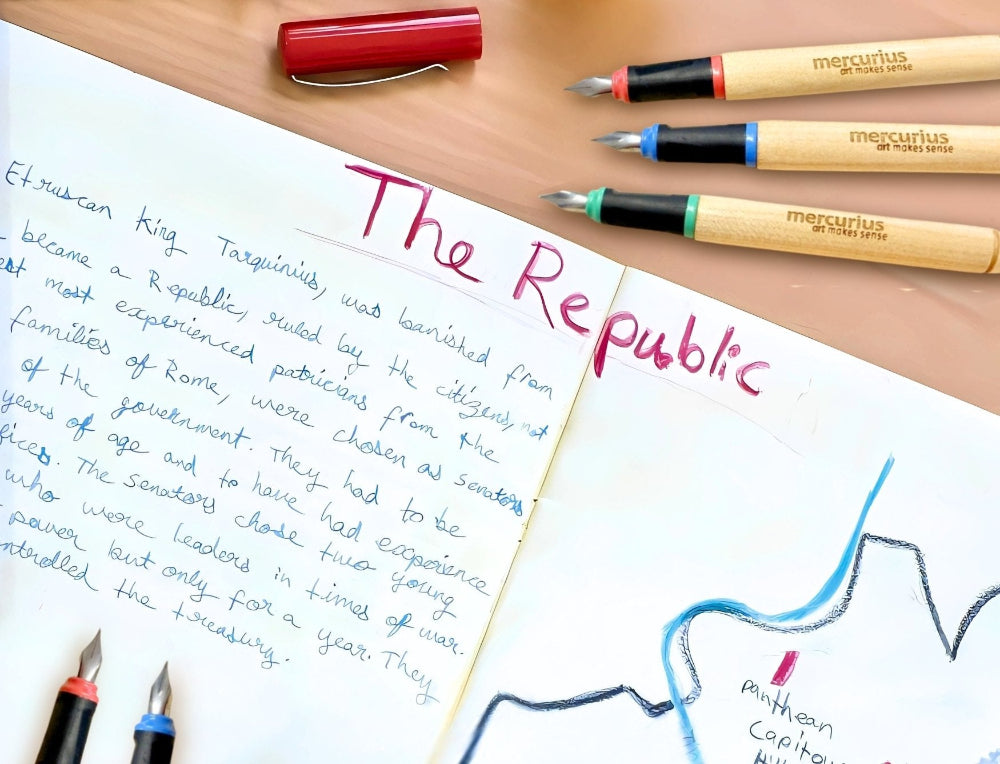 mercurius
art makes sense
mercurius
art makes sense
mercurius
art makes sense
The Republic
Etruscan King Tarquinius, was banished from
became a Republic, ruled by the citizens, not
est most experienced patricians from the
families of Rome, were chosen as senators
of the government. They had to be
years of age and to have had experience
fices. The Senators chose two young
who were leaders in times of war.
power but only for a year. They
ntrolled the treasury.
panthean
Capitou